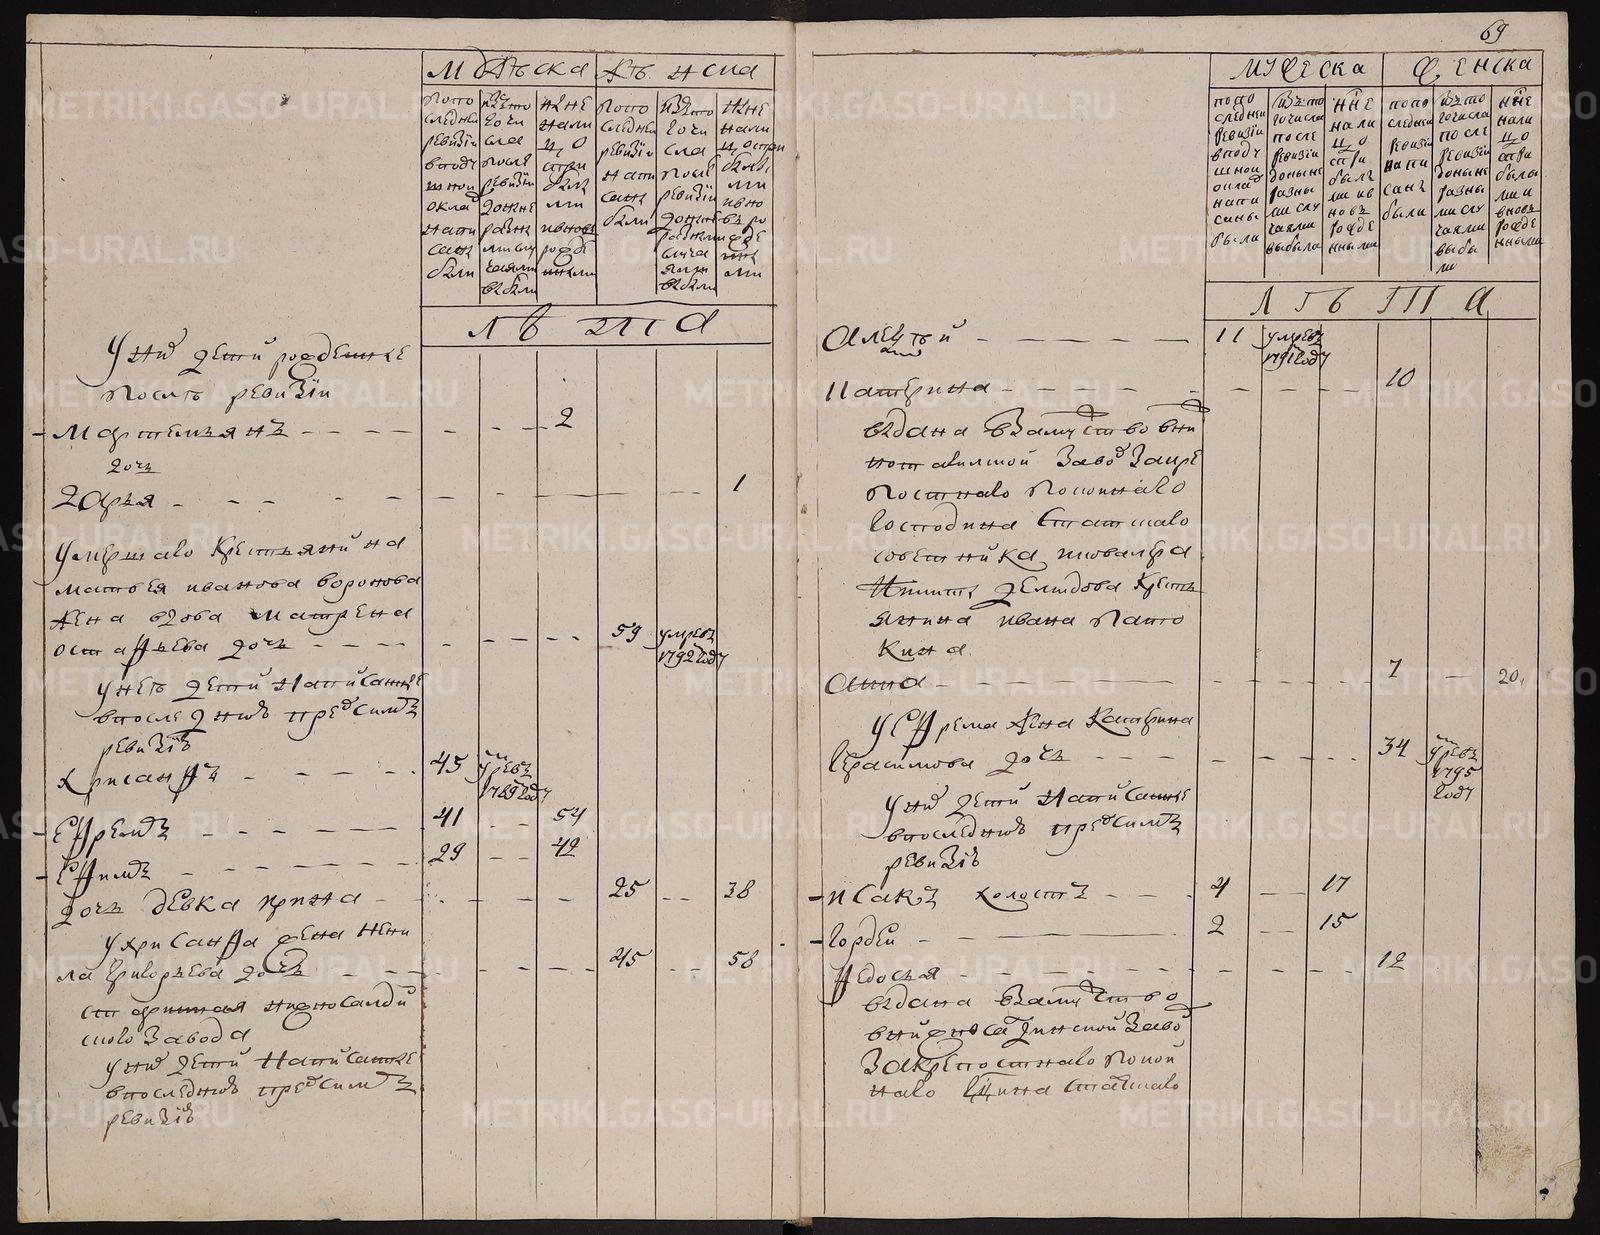 69
мужеска женска
попо следней ревизiи вподушной оклад написаны были
изъ того числа после ревизiи доныне разными случаями выбыли
ныне налицо стри были ивновь рожденными
попо следней ревизiи написаны были
изъ того числа после ревизiи доныне разными случаями выбыли
ныне налицо были ивновь рожденными
лѣта
У них детей рожденные
послѣ ревизiи
Мартемьянъ 2
дочь
Дарья 1
Умершаго крестьянина
Матвея иванова воронова
жена вдова Матрена
остафьева дочь 59 умре въ 1792 году
У нетъ детей написанные
впоследней пред симъ
ревизiѣ
Хрисанфъ 45 умре въ 1789 году
Ефремъ 41 54
Ефимъ 29 42
дочь девка ирина 25 38
У хрисанфа жена нени
ла григорьева дочь 45 58
старинная нижносалди
нского завода
У них детей написанные
впоследней предсимъ
ревизiѣ
мужеска женска
попо следней ревизiи вподушной оклад написаны были
изъ того числа после ревизiи доныне разными случаями выбыли
ныне налицо были ивновь рожденными
попо следней ревизiи написаны были
изъ того числа после ревизiи доныне разными случаями выбыли
ныне налицо были ивновь рожденными
лѣта
Алексѣй 11 умре въ 1791 году
Катерина 10
выдана взамуство вни
завод закре
постнаго покойнаго
господина статскаго
советника ковалера
Никиты демидова крестъ
янина ивана
кина
анна 7 20
У Ефрема жена Катерина
Герасимова дочь 34 умре въ 1795 году
У них детей написанные
впоследней предсимъ
ревизiѣ
исакъ холостъ 4 17
Гордей 2 15
Федосья 12
выдана взамуство
внижносалдинской завод
закрепостнаго покой
наго гдина статскаго
METRIKI.GASO-URAL.RU